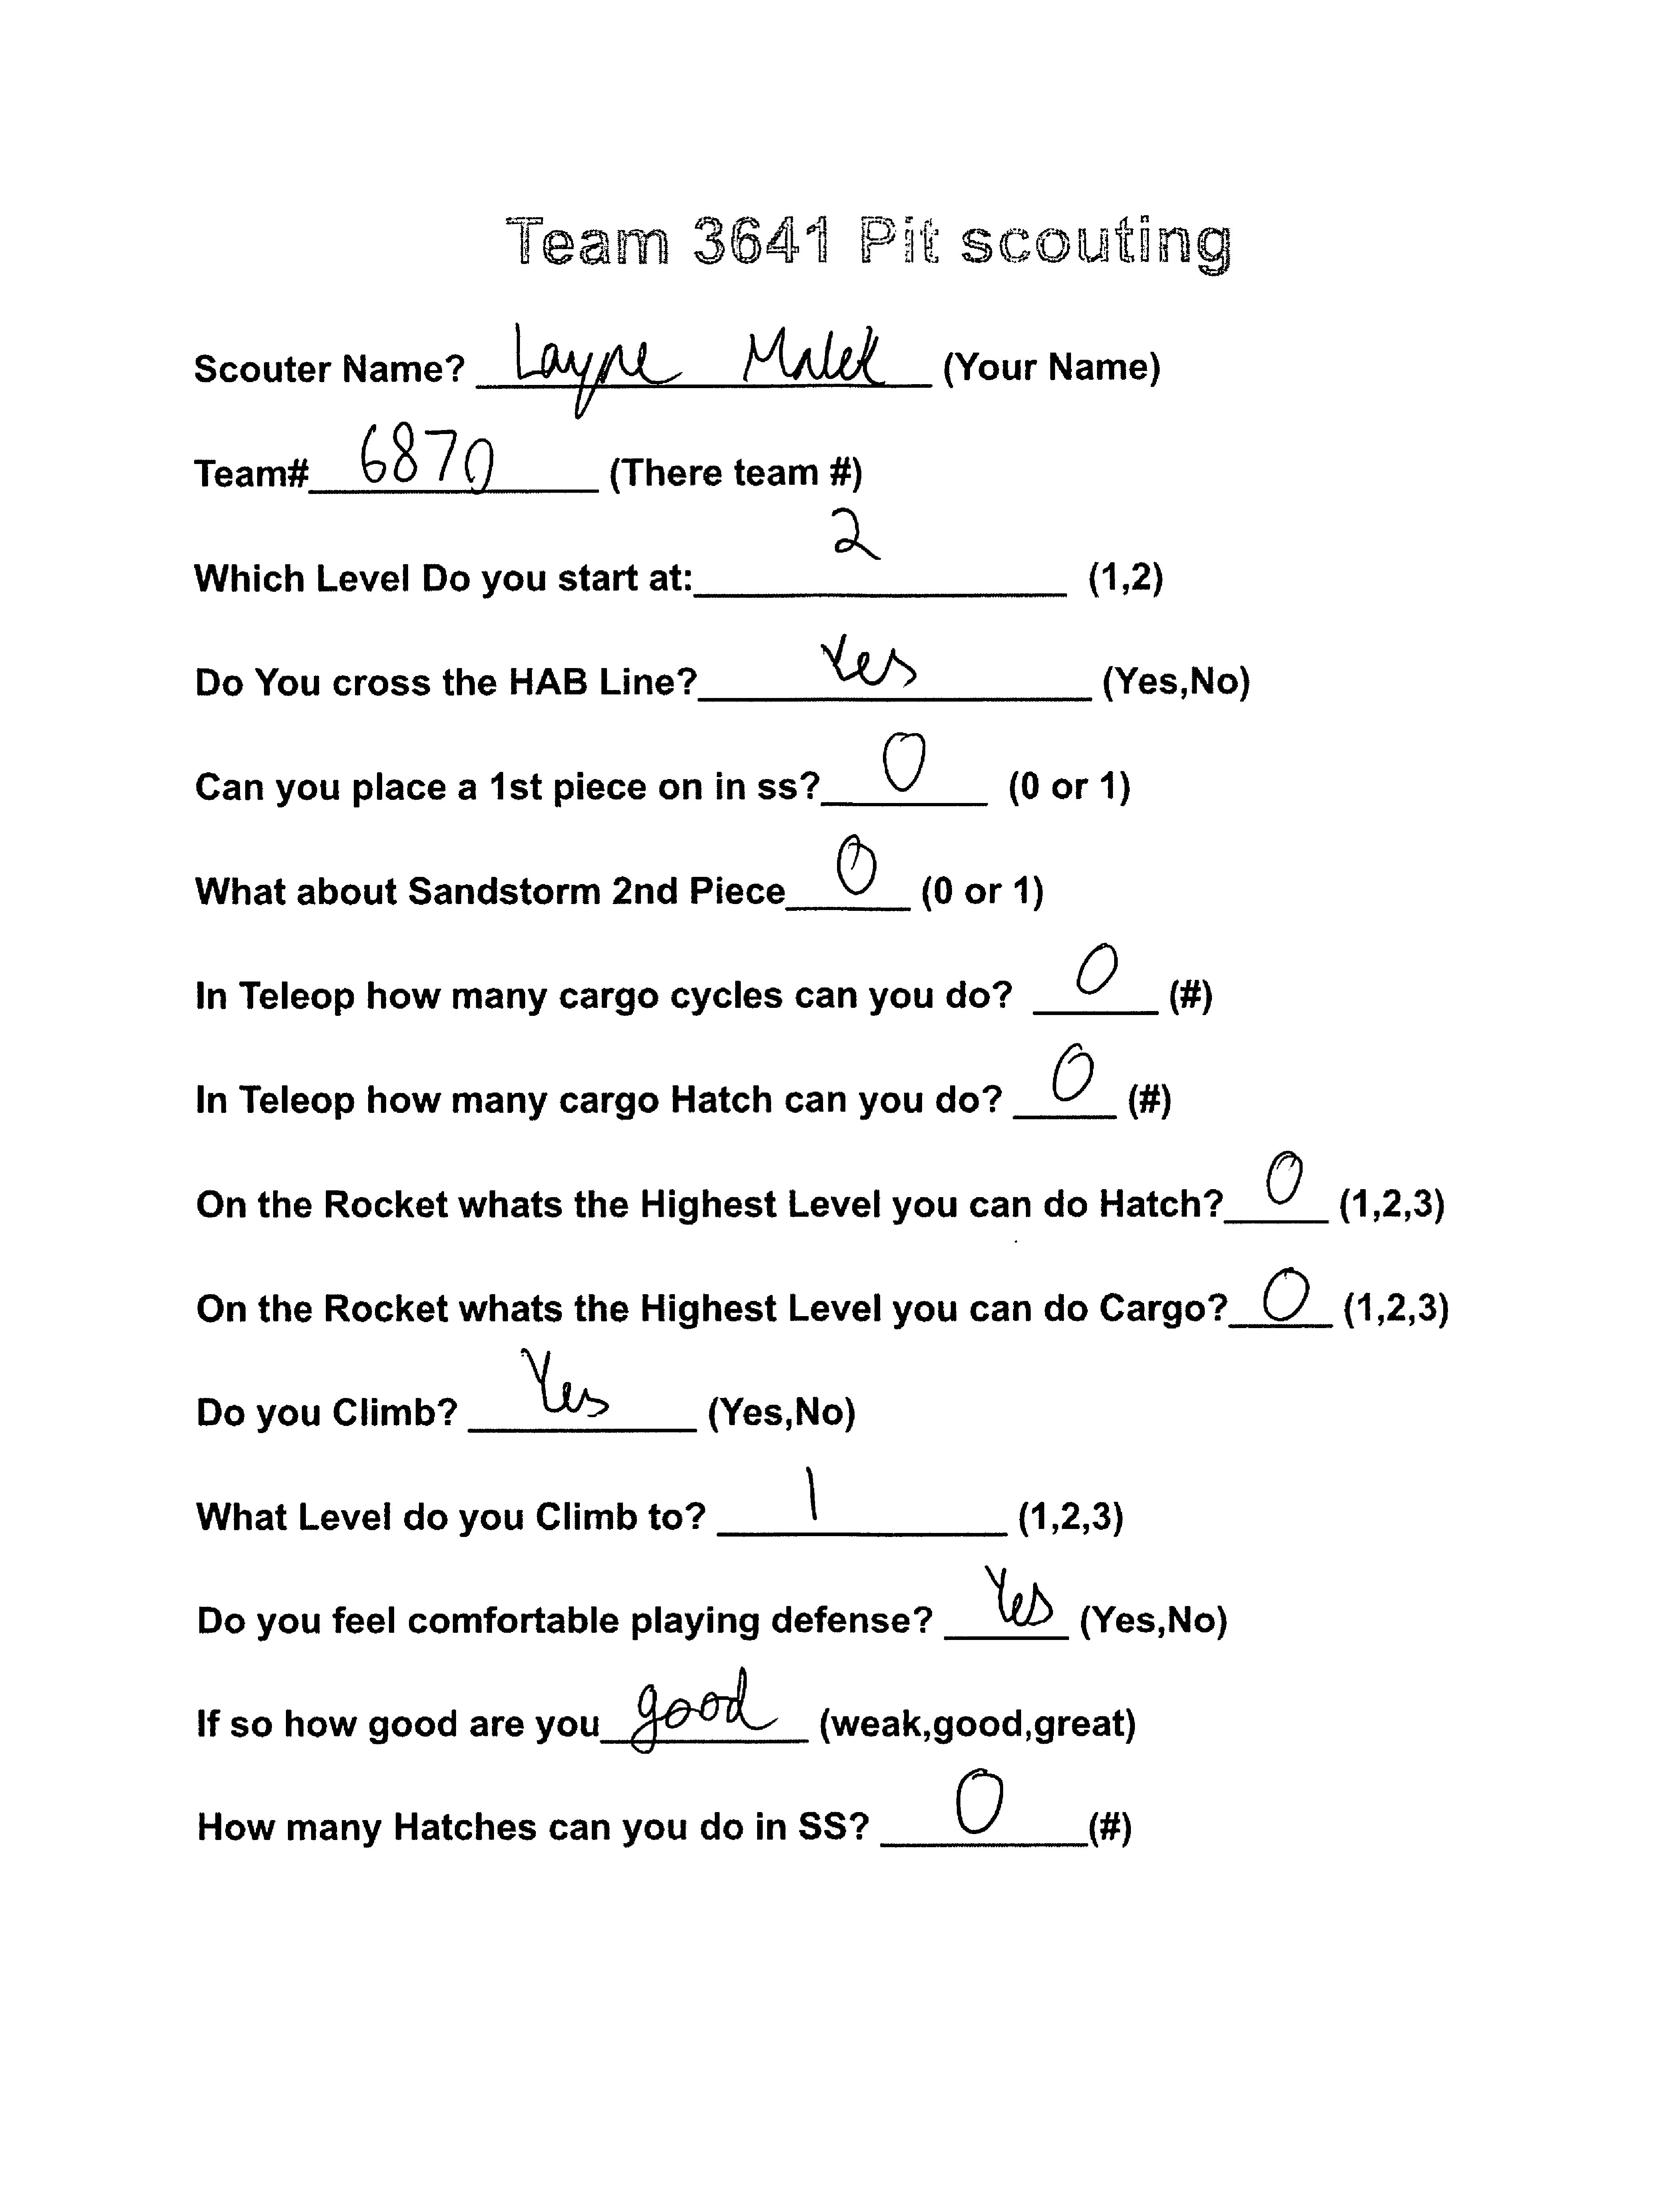 Team 3641 Pit scouting
Scouter Name? Layne Malek (Your Name)
Team# 6870 (There team #)
Which Level Do you start at: 2 (1,2)
Do You cross the HAB Line? Yes (Yes,No)
Can you place a 1st piece on in ss? 0 (0 or 1)
What about Sandstorm 2nd Piece 0 (0 or 1)
In Teleop how many cargo cycles can you do? 0 (#)
In Teleop how many cargo Hatch can you do? 0 (#)
On the Rocket whats the Highest Level you can do Hatch? 0 (1,2,3)
On the Rocket whats the Highest Level you can do Cargo? 0 (1,2,3)
Do you Climb? Yes (Yes,No)
What Level do you Climb to? 1 (1,2,3)
Do you feel comfortable playing defense? Yes (Yes,No)
If so how good are you good (weak,good,great)
How many Hatches can you do in SS? 0 (#)